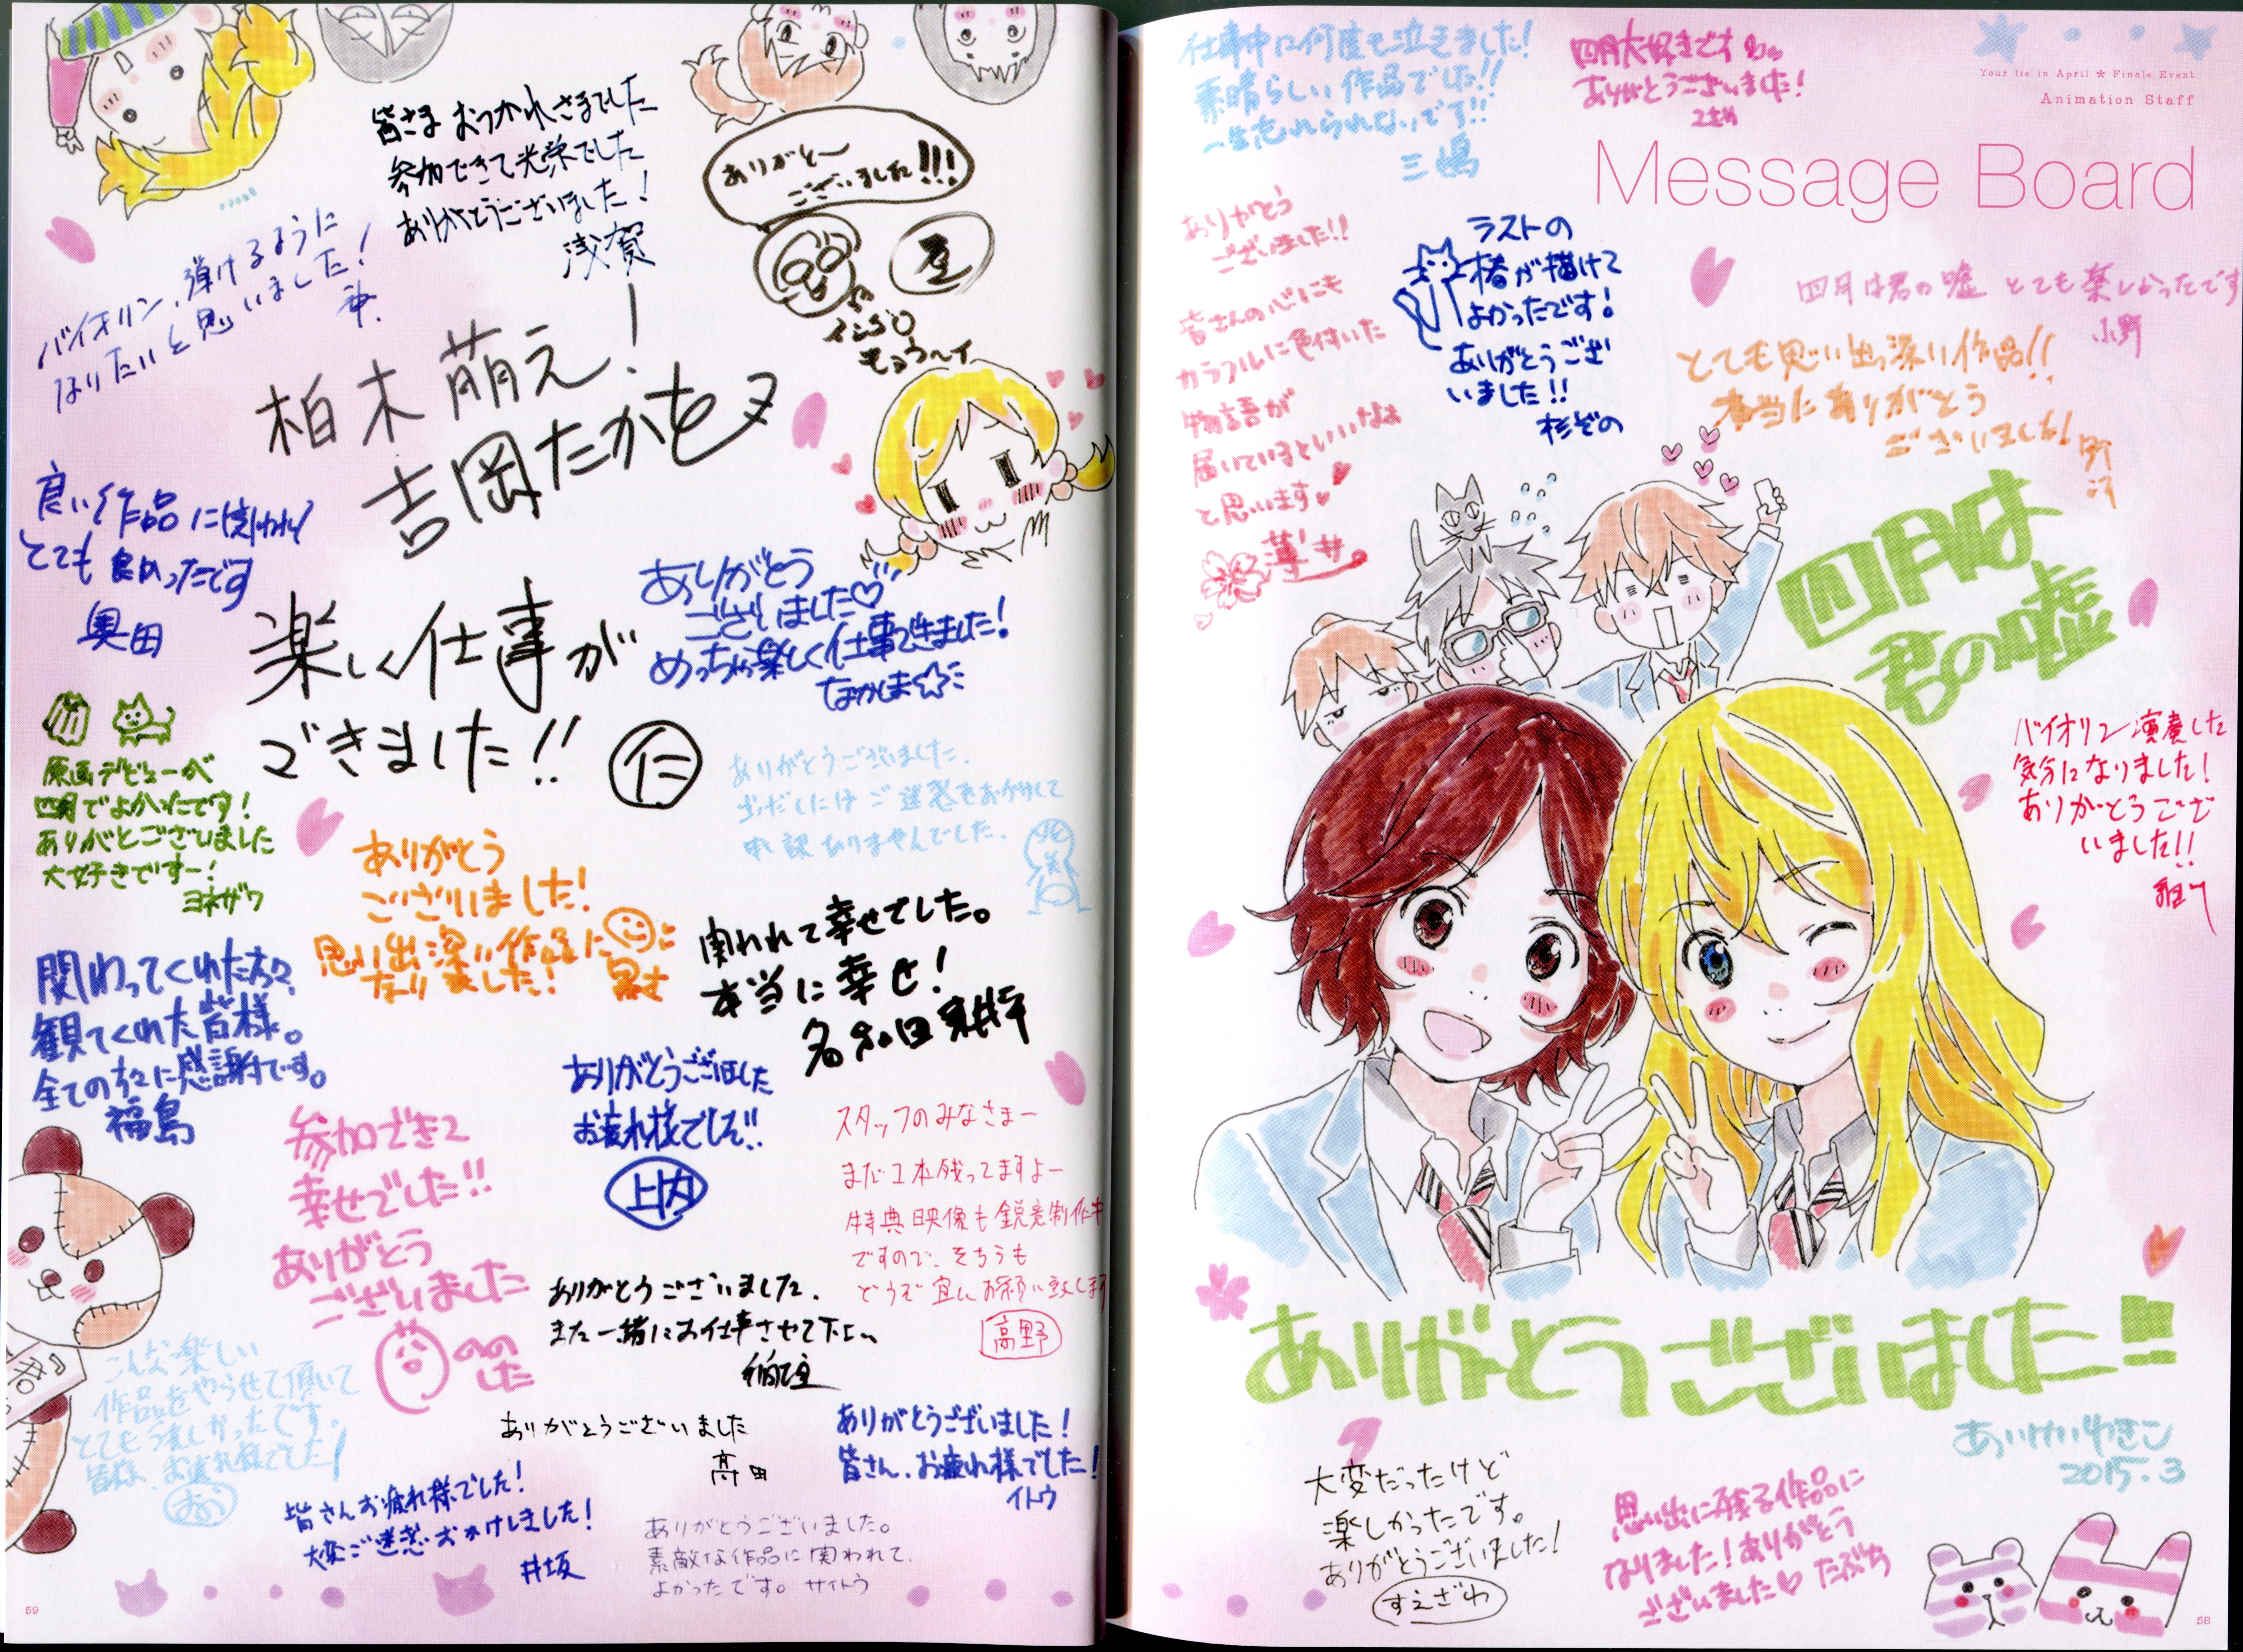 Your lie in April * Finale Event
Animation Staff
Message Board
仕事中に何度も泣きました!
素晴らしい作品でした!!
一生忘れられないです!!
三嶋
四月大好きです
ありがとうございました!
ありがとう
ございました!!
皆さんの心にも
カラフルに色付いた
物語が
届いているといいなぁ
と思います
ラストの
椿が描けて
よかったです!
ありがとうござ
いました!!
杉ぞの
四月は君の嘘 とても楽しかったです
小野
とても思い出深い作品!!
本当にありがとう
ございました!
四月は
君の嘘
バイオリン演奏した
気分になりました!
ありがとうござ
いました!!
ありがとうございました!!
あいけいゆきこ
2015.3
大変だったけど
楽しかったです。
ありがとうございました!
すえざわ
思い出に残る作品に
なりました!ありがとう
ございました♡ たぶち
58
皆さま おつかれさまでした
参加できて光栄でした
ありがとうございました!
浅賀
ありがと〜
ございました!!!
バイオリン、弾けるように
なりたいと思いました!
神.
柏木萌え!
吉岡たかを
良い作品に関われ
とても良かったです
奥田
楽しい仕事が
できました!!
仁
ありがとう
ございました♡
めっちゃ楽しく仕事できました!
なかしま☆
原画デビューが
四月でよかったです!
ありがとございました
大好きですー!
ヨネザワ
ありがとうございました.
ご迷惑をおかけして
申し訳ありませんでした.
ありがとう
ございました!
思い出深い作品に
なりました!
関われて幸せでした。
本当に幸せ!
名和田
関わってくれた方々、
観てくれた皆様。
全ての方々に感謝です。
福島
ありがとうございました
お疲れ様でした!!
上内
参加できて
幸せでした!!
ありがとう
ございました
スタッフのみなさまー
まだ1本残ってますよー
特典映像も鋭意制作中
ですので、そちらも
どうぞ宜しくお願い致します
高野
ありがとうございました.
また一緒にお仕事させて下さい
こんな楽しい
作品をやらせて頂いて
とてもうれしかったです。
皆様、お疲れ様でした!
ありがとうございました
高田
ありがとうございました!
皆さん、お疲れ様でした!
イトウ
皆さんお疲れ様でした!
大変ご迷惑おかけしました!
井坂
ありがとうございました。
素敵な作品に関われて、
よかったです。サイトウ
59